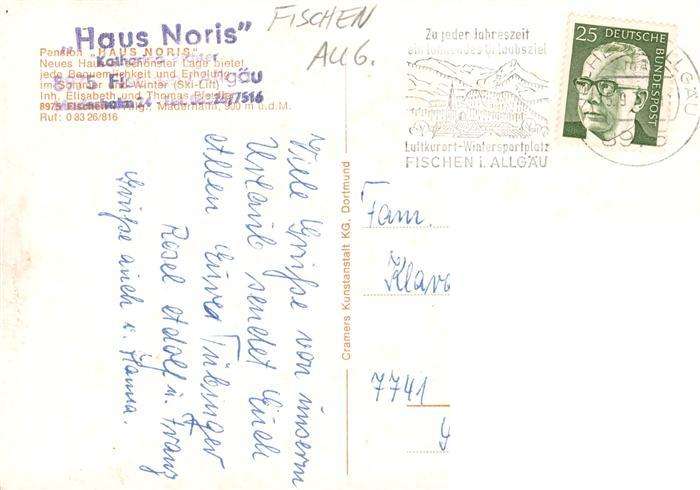 „Haus Noris"
FISCHEN
AUG.
Pension "HAUS NORIS"
Neues Haus in schönster Lage bietet
jede Bequemlichkeit und Erholung
im Sommer und Winter (Ski-Lift)
Inh. Elisabeth und Thomas
900 m ü.d.M.
Ruf: 0 83 26/816
Zu jeder Jahreszeit
ein lohnendes Urlaubsziel
Luftkurort-Wintersportplatz
FISCHEN i. ALLGÄU
25
DEUTSCHE BUNDESPOST
ALLGÄU
Viele Grüße von unserm
Urlaub sendet Euch
Allen Eure Tübinger
Rosel Adolf u. Franz
Grüße auch v. Hanna.
Cramers Kunstanstalt KG, Dortmund
Fam.
7741